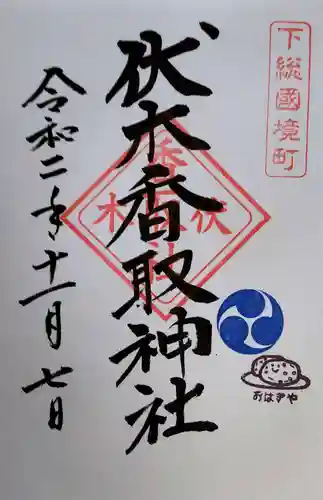 下総國境町
伏木香取神社
伏木
令和二年十一月七日
おはぎや